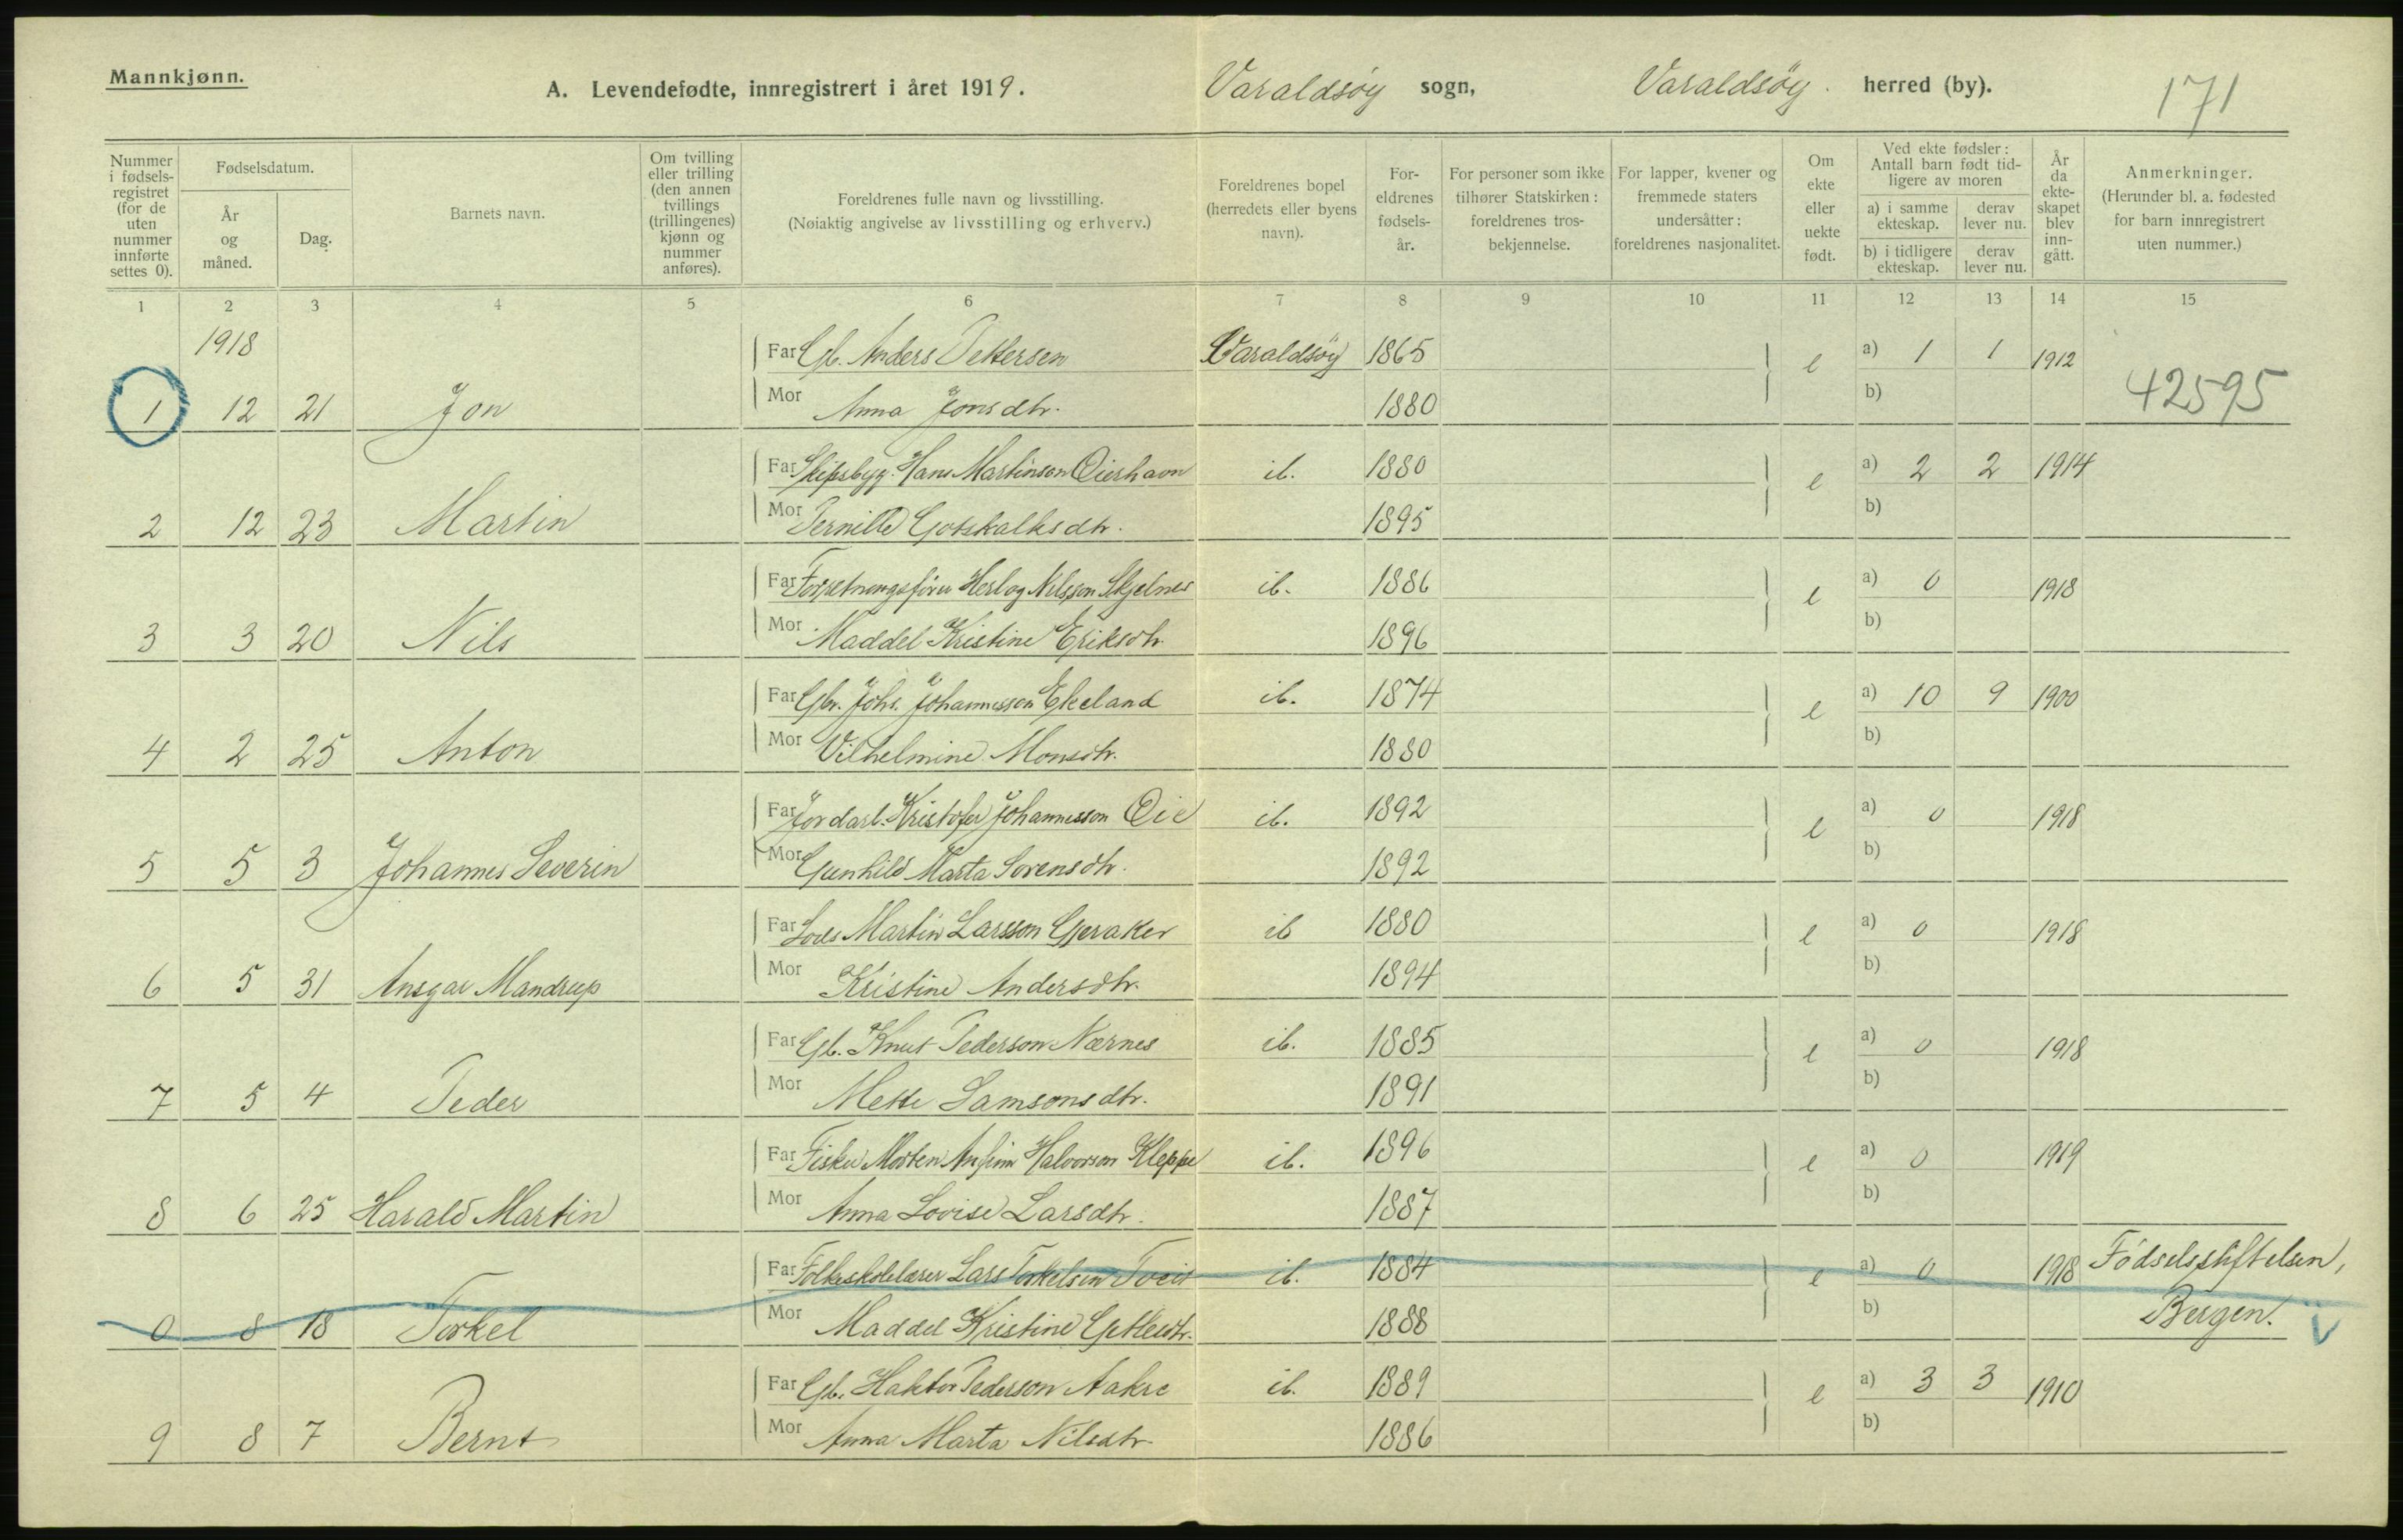 Mannkjønn.
A. Levendefødte, innregistrert i året 1919. Varaldsöy sogn, Varaldsöy. herred (by). 171
Nummer i fødselsregistret (for de uten nummer innførte settes 0).
Fødselsdatum.
År og måned.
Dag.
Barnets navn.
Om tvilling eller trilling (den annen tvillings (trillingenes) kjønn og nummer anføres).
Foreldrenes fulle navn og livsstilling.
(Nøiaktig angivelse av livsstilling og erhverv.)
Foreldrenes bopel (herredets eller byens navn).
Foreldrenes fødselsår.
For personer som ikke tilhører Statskirken: foreldrenes trosbekjennelse.
For lapper, kvener og fremmede staters undersåtter: foreldrenes nasjonalitet.
Om ekte eller uekte født.
Ved ekte fødsler: Antall barn født tidligere av moren
a) i samme ekteskap. derav lever nu.
b) i tidligere ekteskap. derav lever nu.
År da ekteskapet blev inngått.
Anmerkninger.
(Herunder bl. a. fødested for barn innregistrert uten nummer.)
1 2 3 4 5 6 7 8 9 10 11 12 13 14 15
1918
Far Gb. Anders Pettersen Varaldsöy 1865 e a) 1 1 1912
1 12 21 Jon Mor Anna Jonsdtr. 1880 b) 42595
Far Skipsbygg. Hans Martinson Oierhavn ib. 1880 e a) 2 2 1914
2 12 23 Martin Mor Pernille Gotskalksdtr. 1895 b)
Far Forretningsförer Herlog Nilsson Skjelnes ib. 1886 e a) 0 1918
3 3 20 Nils Mor Maddel Kristine Eriksdtr. 1896 b)
Far Gbr. Johs. Johannesson Ekeland ib. 1874 e a) 10 9 1900
4 2 25 Anton Mor Vilhelmine Monsdtr. 1880 b)
Far Jordarb. Kristofer Johannesson Oie ib. 1892 e a) 0 1918
5 5 3 Johannes Severin Mor Gunhild Marta Sorensdtr. 1892 b)
Far Lods Martin Larsson Gjeraker ib 1880 e a) 0 1918
6 5 31 Ansgar Mandrup Mor Kristine Andersdtr. 1894 b)
Far Gb. Knut Pederson Nærnes ib. 1885 e a) 0 1918
7 5 4 Peder Mor Mette Samsonsdtr. 1891 b)
Far Fisker Morten Anfinn Halvorson Kleppe ib. 1896 e a) 0 1919
8 6 25 Harald Martin Mor Anna Lovise Larsdtr. 1887 b)
Far Folkeskolelærer Lars Torkelsen Tveit ib. 1884 e a) 0 1918 Födselsstiftelsen,
0 8 18 Torkel Mor Maddel Kristine 1888 b) Bergen.
Far Gb. Haktor Pederson Aakre ib. 1889 e a) 3 3 1910
9 8 7 Bernt Mor Anna Marta Nilsdtr. 1886 b)